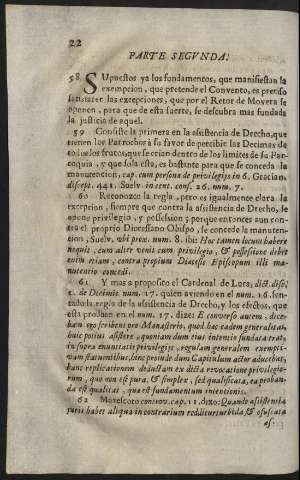 22
PARTE SEGVNDA.
58 SUpuestos ya los fundamentos, que manifiestan la
exempcion, que pretende el Convento, es preciso
satisfacer las excepciones, que por el Retor de Movera se
oponen, para que de esta suerte, se descubra mas fundada
la justicia de aquel.
59 Consiste la primera en la asistencia de Drecho, que
tienen los Parrochos à su favor de percibir las Decimas de
todos los frutos, que se crian dentro de los limites de su Par-
roquia, y que sola esta, es bastante para que se conceda la
manutencion, cap. cum persona de privilegijs in 6. Gracian.
discept. 441. Suelv. in cent. cons. 26. num. 7.
60 Reconozco la regla, pero es igualmente clara la
excepcion, siempre que contra la asistencia de Drecho, se
opone privilegio, y possession; porque entonces aun con-
tra el proprio Diocessano Obispo, se concede la manuten-
cion, Suelv. ubi prox. num. 8. ibi: Hoc tamen locum habere
nequit, cum alter venit cum privilegio, & possessione debet
enim etiam, contra propium Diocesis Episcopum illi ma-
nutentio concedi.
61 Y mas a proposito el Cardenal de Luca, dict. disc.
2. de Decimis num. 17. quien aviendo en el num. 16. fun-
dado la regla de la asistencia de Drecho, y los efectos, que
esta produce en el num. 17. dize: E converso autem, dice-
bam ego scribens pro Monasterio, quod hac eadem generalitas
huic potius assistere, quoniam dum eius intentio fundata erat
in supra enuntiatis privilegijs, regulam generalem exempti-
vam statuentibus, hinc proinde dum Capitulum actor adducebat,
hanc replicationem desumptam ex dicta revocatione privilegio-
rum, quo non est pura & simplex, sed qualificata, ea proban-
da est qualitas, qua est fundamentum intentionis.
62 Marescoto controv. cap. 11. dixo: Quando assistentia
juris habet aliqua in contrarium redditur turbida & offuscata